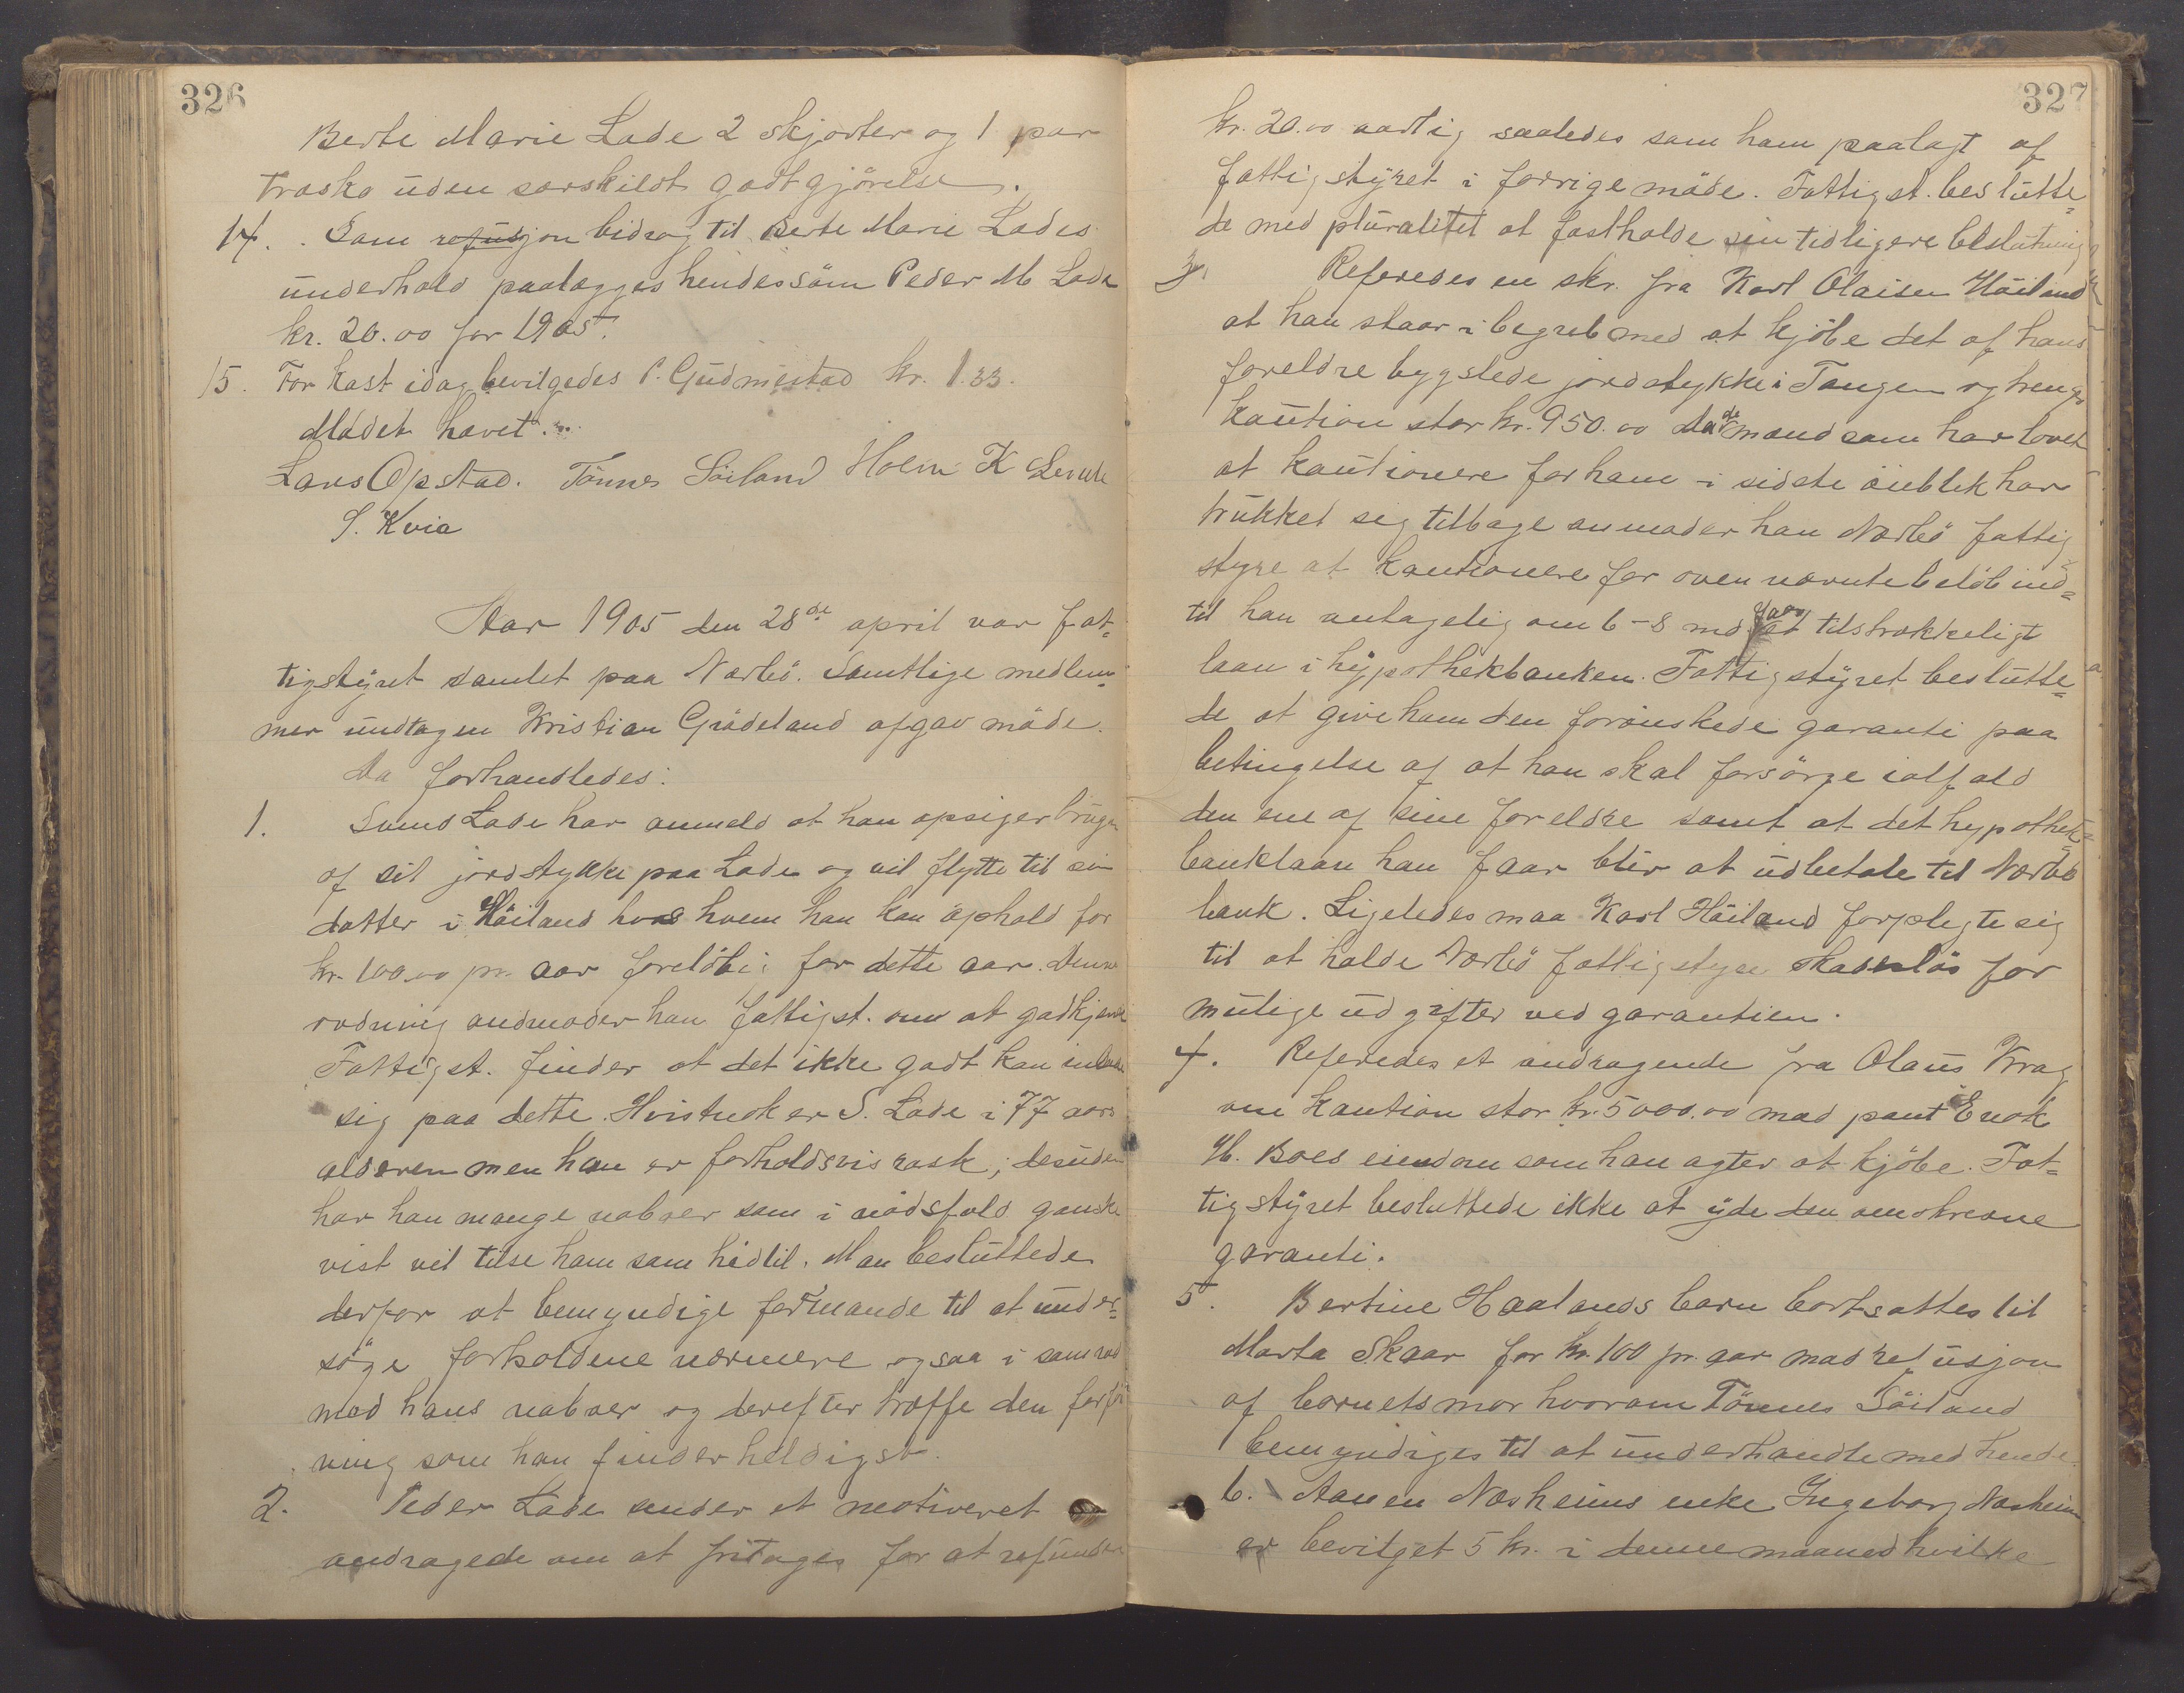 326
Berte Marie Lade 2 skjorter og 1 par
træsko uden særskildt godtgjörelse.
14. Som refusjon bidrag til Berte Marie Lades
underhold paalægges hendes sön Peder M Lade
kr. 20.00 for 1905.
15. For kost idag bevilgedes P. Gudmestad kr. 1.33.
Mödet hævet.
Lars Opstad. Tönnes Söiland Holm K
S. Kvia
Aar 1905 den 28de april var fat-
tigstyret samlet paa Nærbö. Samtlige medlem-
mer undtagen Kristian Grödeland afgav möde.
Da forhandledes:
1. Svend Lade har anmeld at han opsiger brugen
af sit jordstykke paa Lade og vil flytte til sin
datter i Höiland hos hvem han kan ophold for
kr. 100.00 pr. aar forelöbig for dette aar. Denne
ordning andmoder han fattigst. om at godkjende
Fattigst. finder at det ikke godt kan indlade
sig paa dette. Hvistnok er S. Lade i 77 aars
alderen men han er forholdsvis rask; desuden
har han mange naboer som i nödsfald ganske
vist vil tilse ham som hidtil. Man besluttede
derfor at bemyndige formande til at under-
söge forholdene nærmere ogsaa i samraad
med hans naboer og derefter træffe den forföi
ning som han finder heldigst.
2. Peder Lade sender et motiveret
andragede om at fritages for at refundere
327
kr. 20.00 aarlig saaledes som ham paalagt af
fattigstyret i forrige möde. Fattigst. beslutte-
de med pluralitet at fastholde sin tidligere beslutning
3. Referedes en skr. fra Karl Olaisen Höiland
at han staar i begreb med at kjöbe det af hans
foreldre bygslede jordstykke i Tangen og trenger
kaution stor kr. 950.00 Da de mænd som har lovet
at kautionere for ham i sidste öieblek har
trukket sig tilbage anmoder han Nærbö fattig
styre at kautionere for oven nævnte belöb ind-
til han antagelig om 6-8 md faar tilstrækkeligt
laan i hypothekbanken. Fattigstyret beslutte-
de at give ham den forönskede garanti paa
betingelse af at han skal forsörge ialfald
den ene af sine foreldre samt at det hypothek-
banklaan han faar blir at udbetale til Nærbö
bank. Ligeledes maa Karl Höiland forplegte sig
til at holde Nærbö fattigstyre skadeslös for
mulige udgifter ved garantien.
4. Referedes et andragende fra Olaus Krag
om kaution stor kr. 5000.00 mod pant i Enok
H. Boes eiendom som han agter at kjöbe. Fat-
tigstyret besluttede ikke at yde den omskrevne
garanti.
5. Bertine Haalands barn bortsattes til
Marta Skaar for kr. 100 pr. aar mod refusjon
af barnets mor hvorom Tönnes Söiland
bemyndiges til at underhandle med hende.
6. Aanen Næsheims enke Ingeborg Næsheim
er bevilget 5 kr. i denne maaned hvilke